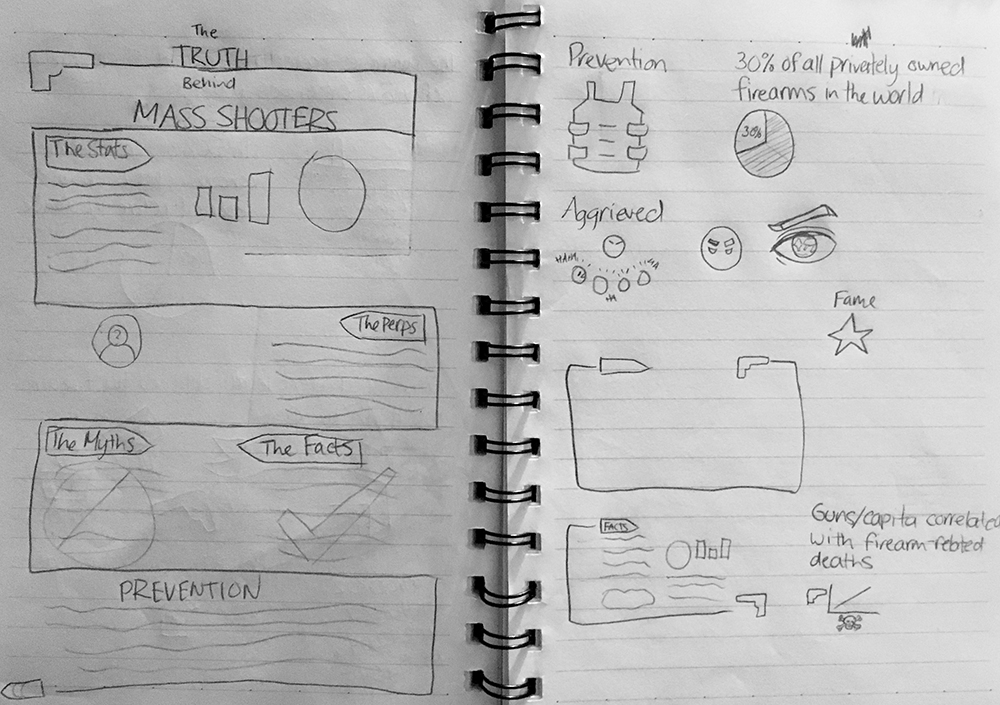 The
TRUTH
Behind
MASS SHOOTERS
The Stats
?
The Perps
The Myths
The Facts
PREVENTION
Prevention
30% of all privately owned
firearms in the world
30%
Aggrieved
HAHA
HA
HA
Fame
FACTS
Guns/capita correlated
with firearm-related
deaths